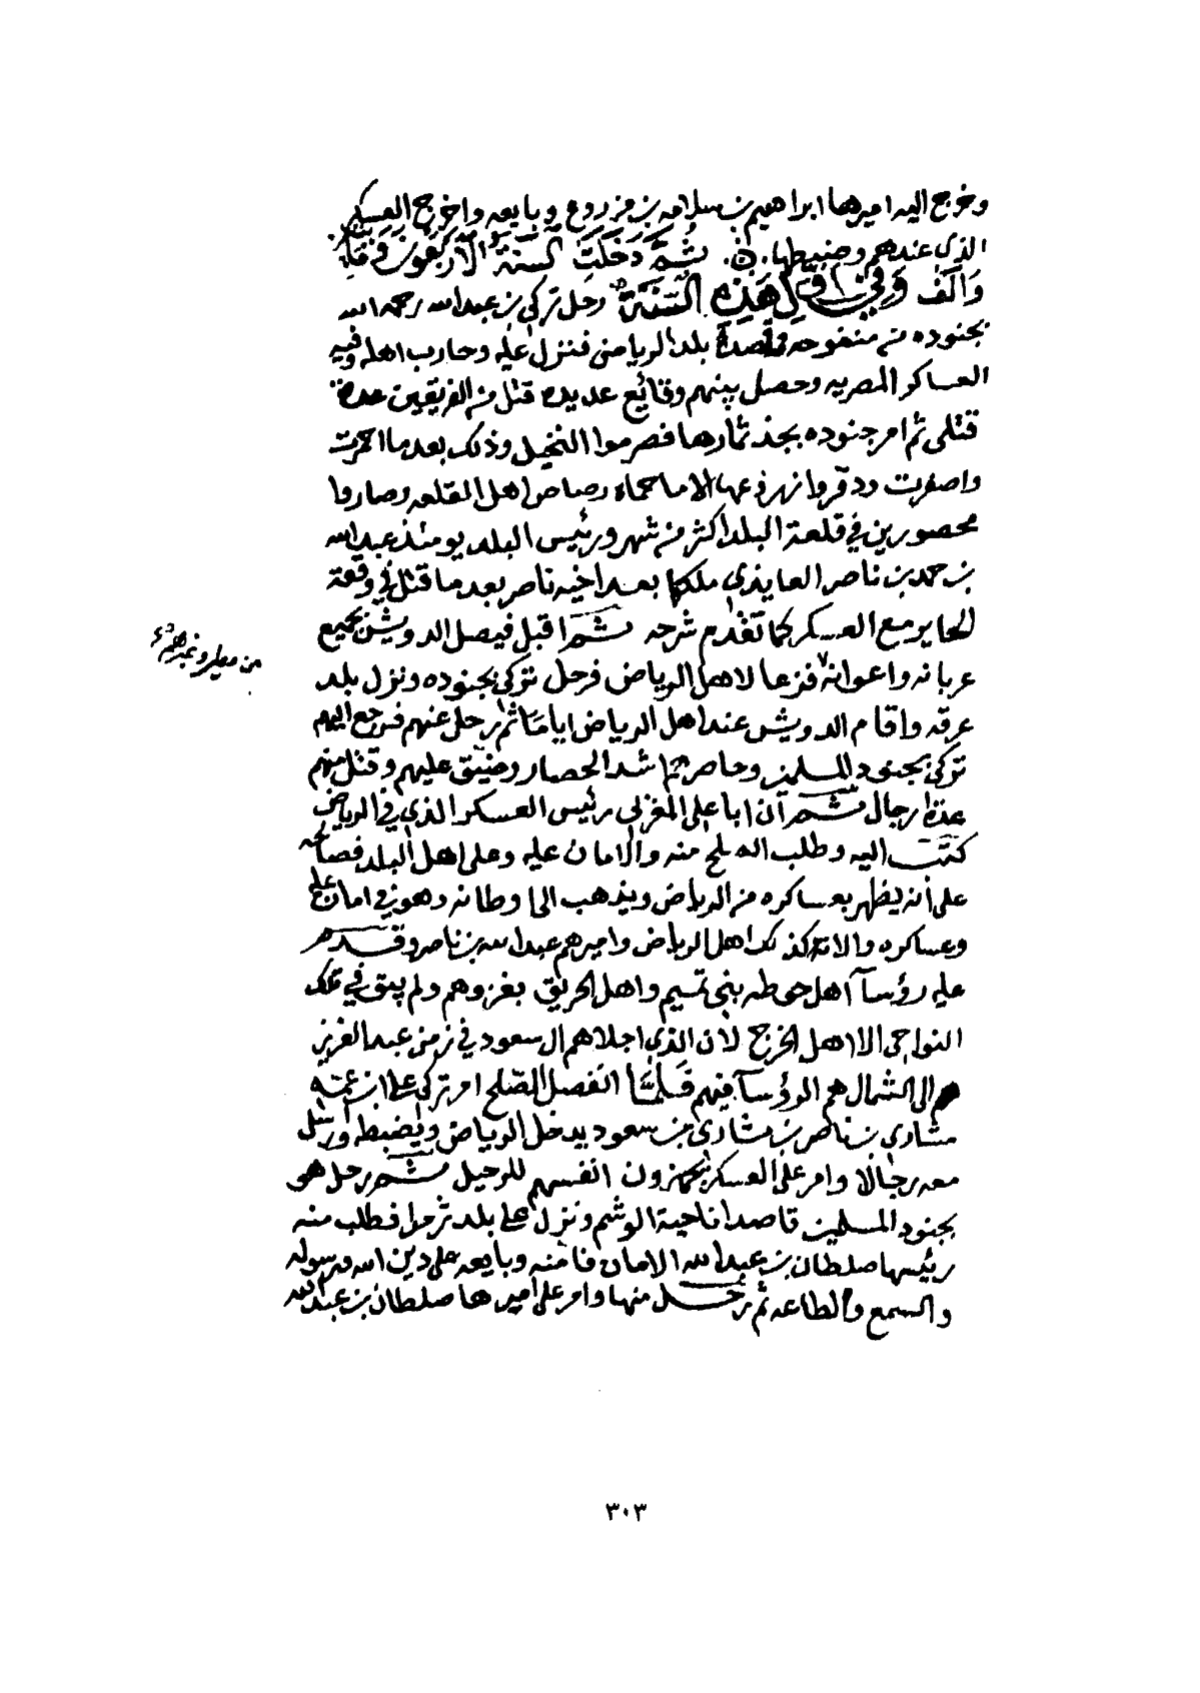 وخرج اليه اميرها ابراهيم بن سلامه بن مزروع وبايعه واخرج العسكر
الذي عندهم وضبطها . ثُمَّ دَخَلَتْ السنة الاربعون ومائتين
وَأَلْف وَفي اول هَذِهِ السَّنَة رحل تركي بن عبدالله رحمه الله
بجنوده من منفوحه وقصد بلد الرياض فنزل عليه وحارب اهله وفيه
العساكر المصريه وحصل بينهم وقائع عديده قتل من الفريقين عدة
قتلى ثم امر جنوده بجذ ثمارها فصرموا النخيل وذلك بعد ما احمرت
واصفرت ودمروا زروعها الا ما حماه رصاص اهل القلعه وصاروا
محصورين في قلعة البلد اكثر من شهر ورئيس البلد يومئذ عبدالله
بن حمد بن ناصر العايذي ملكها بعد اخيه ناصر بعد ما قتل في وقعة
الحاير مع العسكر كما تقدم شرحه ثم اقبل فيصل الدويش بجميع
من مطير وغيرهم
عربانه واعوانه فزعا لاهل الرياض فرحل تركي بجنوده ونزل بلد
عرقه واقام الدويش عند اهل الرياض اياما ثم رحل عنهم فرجع اليهم
تركي بجنود المسلمين وحاصرهم اشد الحصار وضيق عليهم وقتل منهم
عدة رجال ثم ان ابا علي المغربي رئيس العسكر الذي في الرياض
كتب اليه وطلب الصلح منه والامان عليه وعلى اهل البلد فصالحه
على أنه يظهر بعساكره من الرياض ويذهب الى اوطانه وهو في امان على
وعساكره والاتراك كذلك اهل الرياض واميرهم عبدالله بن ناصر وقدم
عليه رؤسآ اهل حوطه بني تميم واهل الحريق بغزوهم ولم يبق في تلك
النواحي الا اهل الخرج لان الذي اجلاهم ال سعود في زمن عبدالعزيز
الى الشمال هم الرؤسآ فيهم فَلَمَّا انفصل الصلح امر تركي على ابن عمه
مشاري بن ناصر بن مشاري بن سعود يدخل الرياض ويضبطه وارسل
معه رجالا وامر على العسكر يجهزون انفسهم للرحيل ثم رحل هو
بجنود المسلمين قاصدا ناحية الوشم ونزل على بلد ثرمدا فطلب منه
رئيسها صلطان بن عبدالله الامان فامنه وبايعه على دين الله ورسوله
والسمع والطاعه ثم رحل منها وامر على اميرها صلطان بن عبدالله
٣٠٣